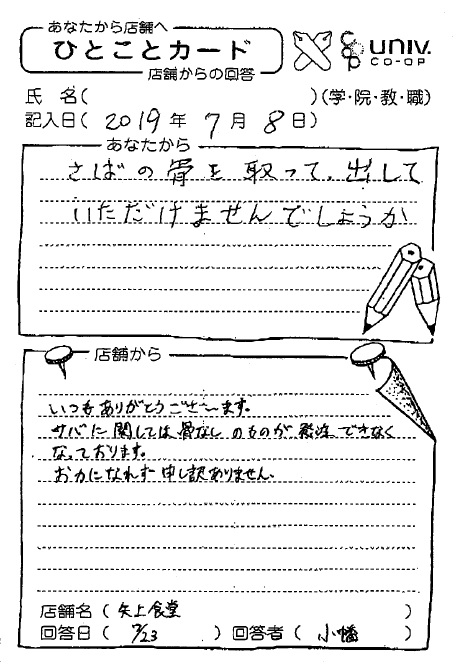 あなたから店舗へ
ひとことカード
店舗からの回答
univ.
CO-OP
氏 名( )(学・院・教・職)
記入日( 2019年 7月 8日)
あなたから
さばの骨を取って、出して
いただけませんでしょうか
店舗から
いつもありがとうございます。
サバに関しては骨なしのものが発注できなく
なっております。
お力になれず申し訳ありません。
店舗名( 矢上食堂 )
回答日( 7/23 )回答者( 小幡 )